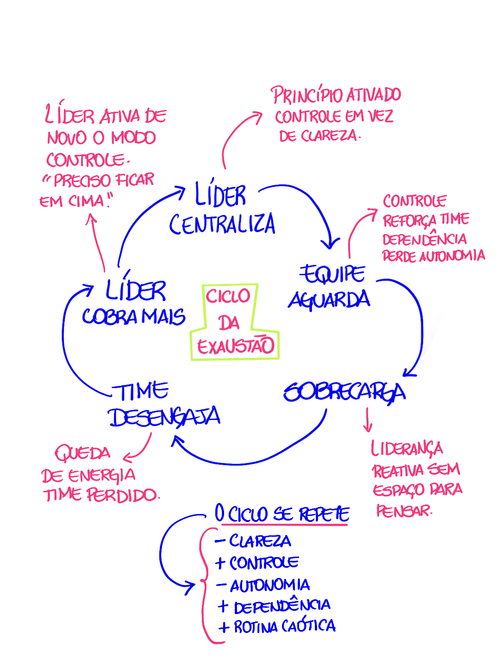 PRINCÍPIO ATIVADO
CONTROLE EM VEZ
DE CLAREZA.
LÍDER ATIVA DE
NOVO O MODO
CONTROLE.
"PRECISO FICAR
EM CIMA."
LÍDER
CENTRALIZA
CONTROLE
REFORÇA TIME
DEPENDÊNCIA
PERDE AUTONOMIA
EQUIPE
AGUARDA
LÍDER
COBRA MAIS
CICLO
DA
EXAUSTÃO
TIME
DESENGAJA
SOBRECARGA
QUEDA
DE ENERGIA
TIME PERDIDO.
LIDERANÇA
REATIVA SEM
ESPAÇO PARA
PENSAR.
O CICLO SE REPETE
- CLAREZA
+ CONTROLE
- AUTONOMIA
+ DEPENDÊNCIA
+ ROTINA CAÓTICA